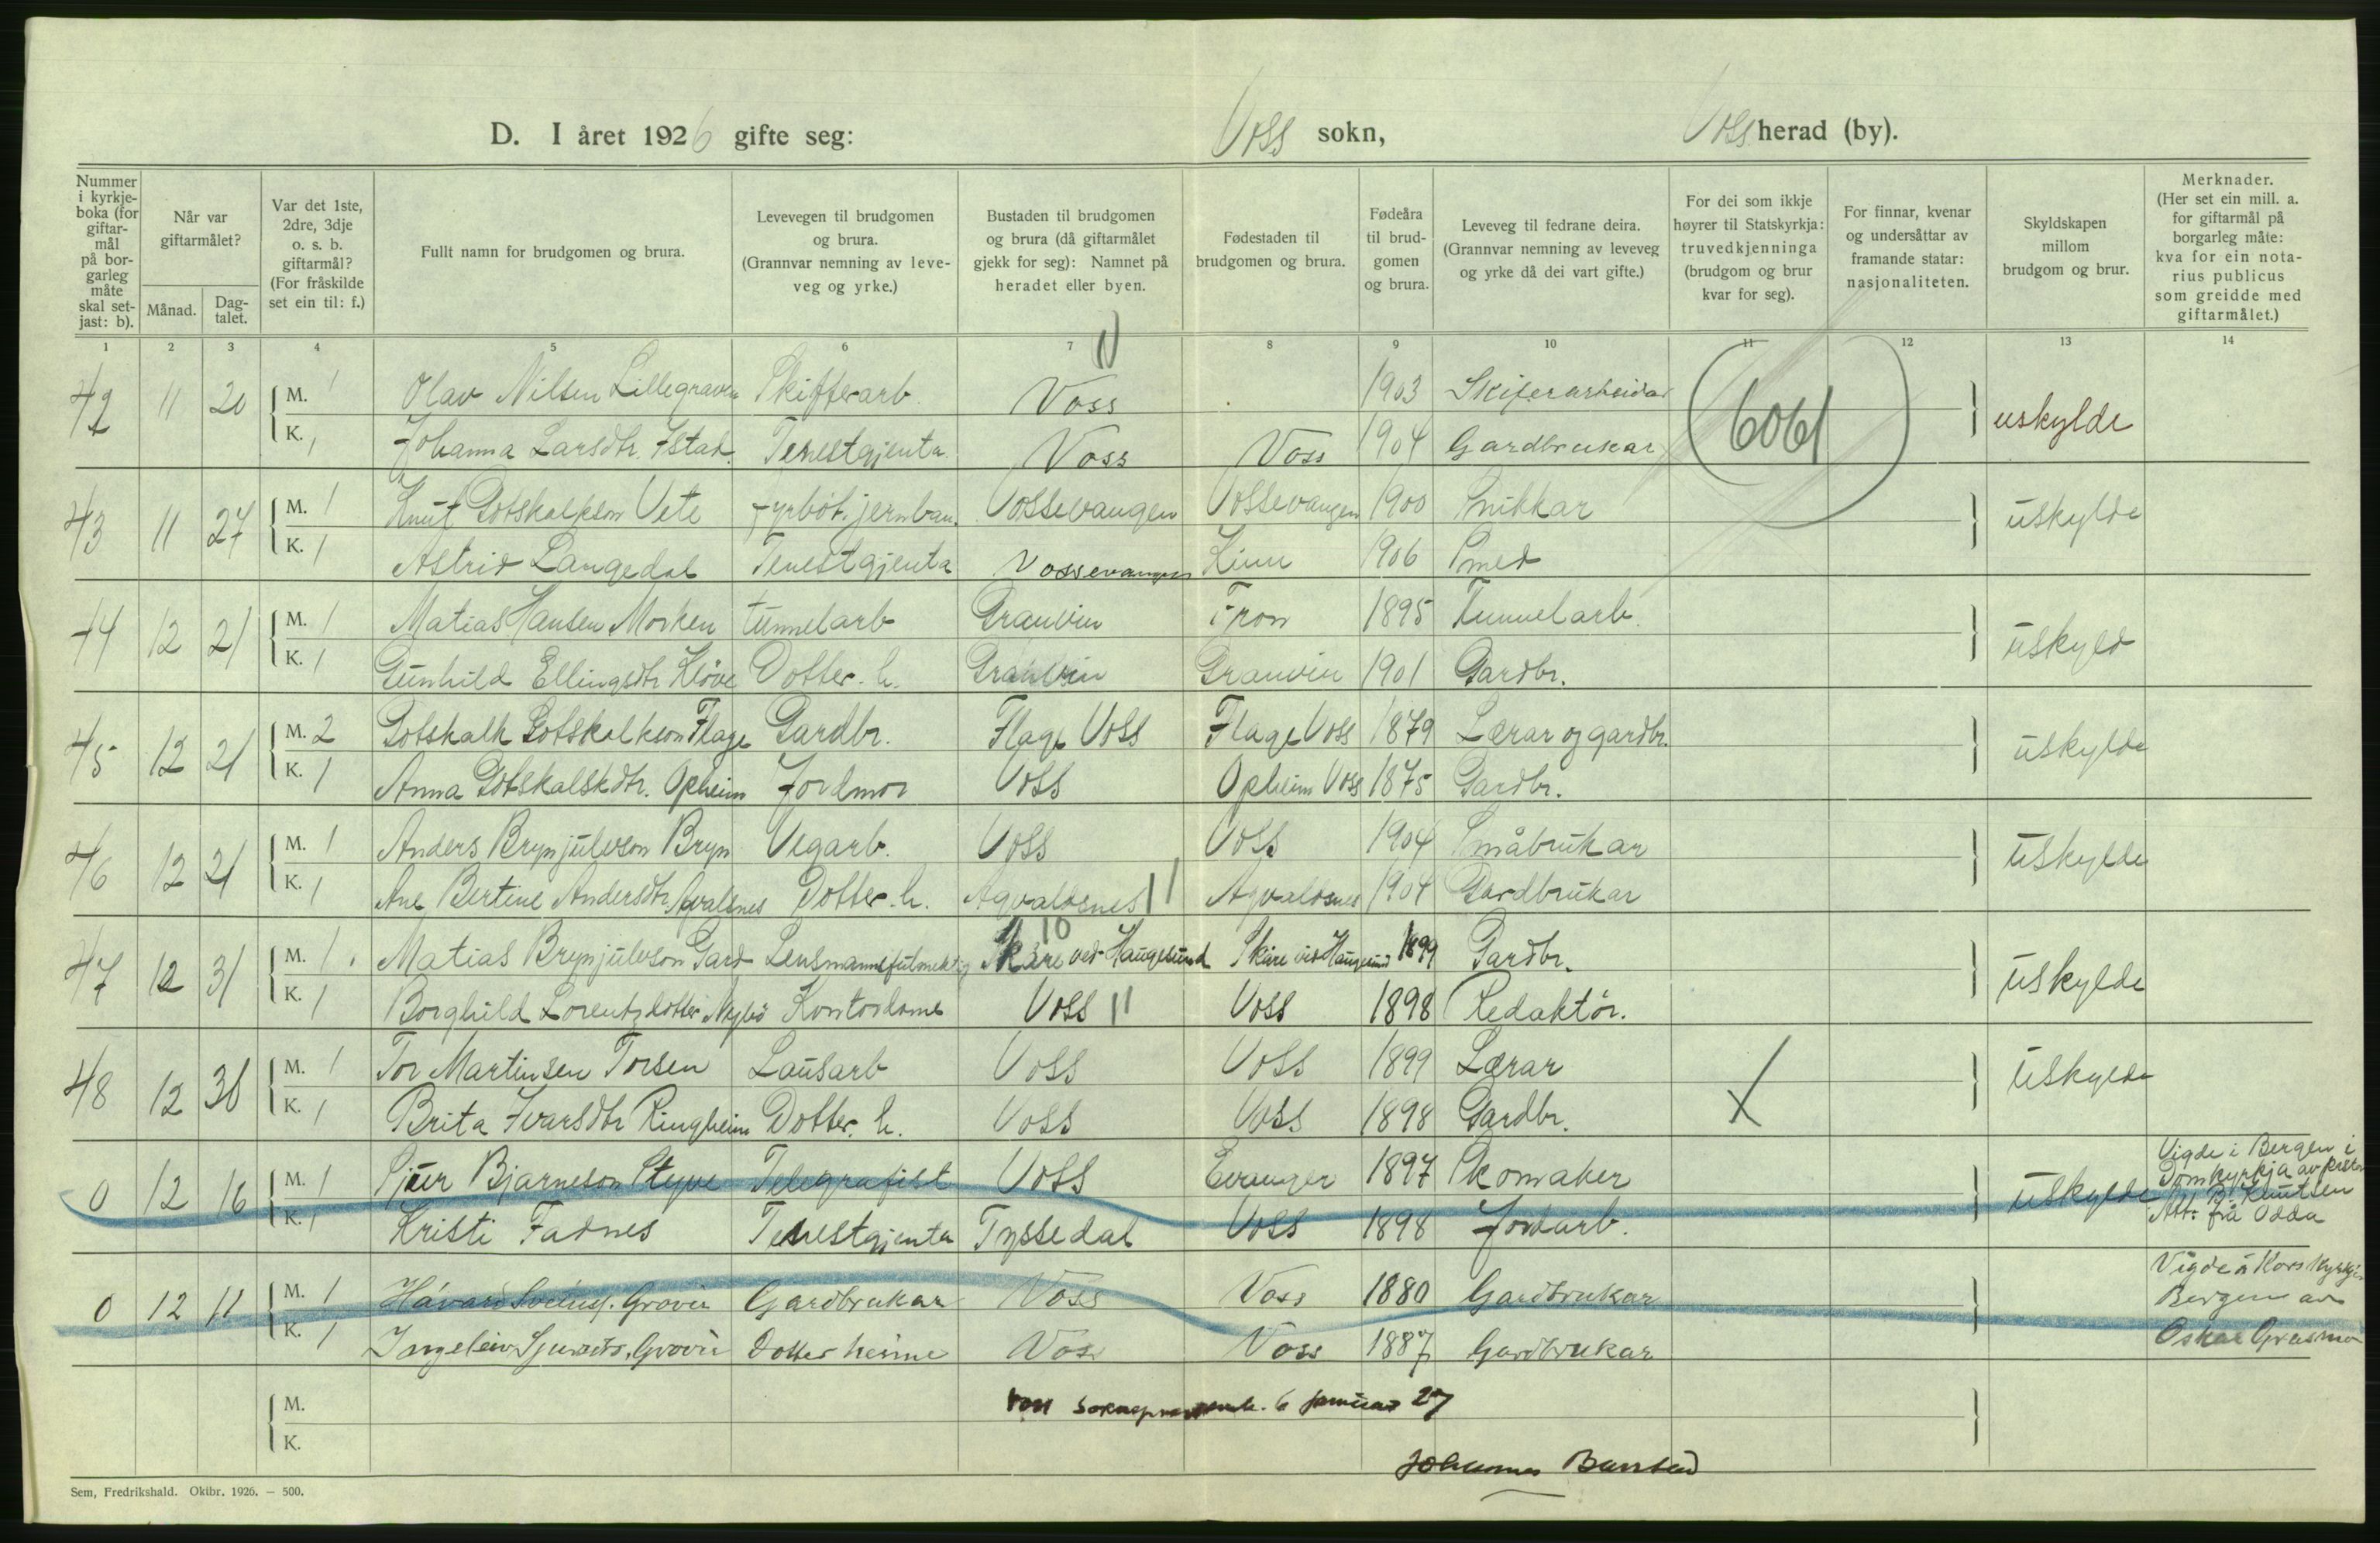 D. I året 1926 gifte seg: Voss sokn, Voss herad (by).
Nummer i kyrkje-boka (for giftar-mål på bor-garleg måte skal set-jast: b).
Når var giftarmålet?
Månad.
Dag-talet.
Var det 1ste, 2dre, 3dje o. s. b. giftarmål? (For fråskilde set ein til: f.)
Fullt namn for brudgomen og brura.
Levevegen til brudgomen og brura. (Grannvar nemning av leve-veg og yrke.)
Bustaden til brudgomen og brura (då giftarmålet gjekk for seg): Namnet på heradet eller byen.
Fødestaden til brudgomen og brura.
Fødeåra til brud-gomen og brura.
Leveveg til fedrane deira. (Grannvar nemning av leveveg og yrke då dei vart gifte.)
For dei som ikkje høyrer til Statskyrkja: truvedkjenninga (brudgom og brur kvar for seg).
For finnar, kvenar og undersåttar av framande statar: nasjonaliteten.
Skyldskapen millom brudgom og brur.
Merknader. (Her set ein mill. a. for giftarmål på borgarleg måte: kva for ein nota-rius publicus som greidde med giftarmålet.)
1 2 3 4 5 6 7 8 9 10 11 12 13 14
11
42 11 20 M. 1 Olav Nilsen Lillegraven Skifterarb. Voss 1903 Skiferarbeidar uskylde
K. 1 Johanna Larsdtr. Istad. Tenestgjenta Voss Voss 1904 Gardbrukar
6061
43 11 27 M. 1 Knut Gotskalkson Vete Fyrbøt. jernban. Vossevangen Vossevangen 1900 Snikkar uskylde
K. 1 Astrid Langedal Tenestgjenta Vossevangen Kinn 1906 Smed
44 12 21 M. 1 Matias Hansen Morken tunnelarb Granvin Fron 1895 Tunnelarb. uskyld
K. 1 Gunhild Ellingsdtr Kløve Dotter h. Granvin Granvin 1901 Gardbr.
45 12 21 M. 2 Gotskalk Gotskalkson Flage Gardbr. Flage Voss Flage Voss 1879 Lærar og gardbr. uskylde
K. 1 Anna Gotskalskdtr. Opheim Jordmor Voss Opheim Voss 1875 Gardbr.
46 12 21 M. 1 Anders Brynjulvson Bryn Vegarb. Voss Voss 1904 Småbrukar uskylde
K. 1 Ane Bertine Andersdtr Avalsnes Dotter h. Agvaldsnes 11 Agvaldsnes 1904 Gardbrukar
10
47 12 31 M. 1 Matias Brynjulvson Gard Lensmannsfulmektig Skåre ved Haugesund Skåre ved Haugesund 1899 Gardbr. uskylde
K. 1 Borghild Lorentzdotter Nybø Kontordame Voss 11 Voss 1898 Redaktør.
48 12 30 M. 1 Tor Martinsen Torsen Lausarb Voss Voss 1899 Lærar uskylde
K. 1 Brita Ivarsdtr Ringheim Dotter h. Voss Voss 1898 Gardbr. X
0 12 16 M. 1 Sjur Bjarneson Styve Telegrafist Voss Evanger 1897 Skomaker uskylde
K. 1 Kristi Fadnes Tenestgjenta Tyssedal Voss 1898 Jordarb.
Vigde i Bergen i
Domkyrkja av prest
Knutsen
Att. frå Odda
0 12 11 M. 1 Håvard Grovu Gardbrukar Voss Voss 1880 Gardbrukar
K. 1 Ingeleiv Sjursdtr. Grovu Dotter heime Voss Voss 1887 Gardbrukar
Vigde i Korskyrkja
Bergen av
Oskar
M.
K.
Voss 6 januar 27
Johannes
Sem, Fredrikshald. Oktbr. 1926. — 500.